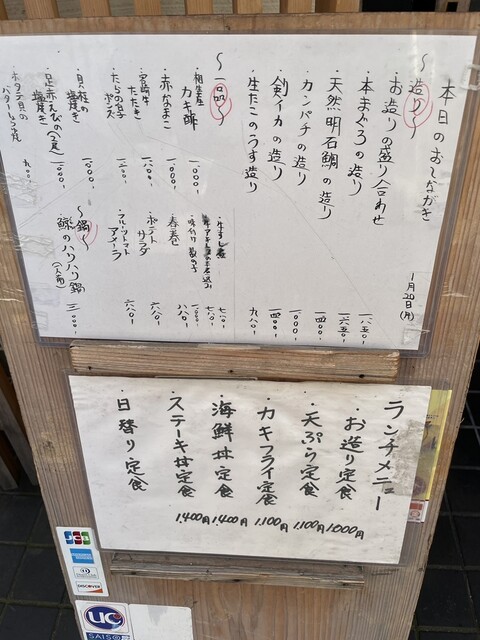 本日のおしながき
1月20日(月)
〜造り〜
・お造りの盛り合わせ 一八五〇-
・本まぐろの造り 一六五〇-
・天然明石鯛の造り 一四〇〇-
・カンパチの造り 一〇〇〇-
・剣イカの造り 一二〇〇-
・生たこのうす造り 九八〇-
〜一品〜
・相生産 カキ酢 一、〇〇〇-
・赤なまこ 一、〇〇〇-
・宮崎牛 たたき 一、八〇〇-
・たらの白子 ポンズ
・貝柱の 塩焼き 一、〇〇〇-
・足赤えびの(2尾) 塩焼き 一、〇〇〇-
・ホタテ貝の バターしょう油 九〇〇-
七八〇-
・味付け数の子 八八〇-
・春巻 八八〇-
・ポテト サラダ 六八〇-
・フルーツトマト アメーラ 六八〇-
〜鍋〜
鯨のハリハリ鍋 (一人前) 三、〇〇〇-
ランチメニュー
・お造り定食 1.000円
・天ぷら定食 1.100円
・カキフライ定食 1.100円
・海鮮丼定食 1.400円
・ステーキ丼定食 1.400円
・日替り定食
JCB
AMERICAN EXPRESS
Diners Club
DISCOVER
UC
SAISON